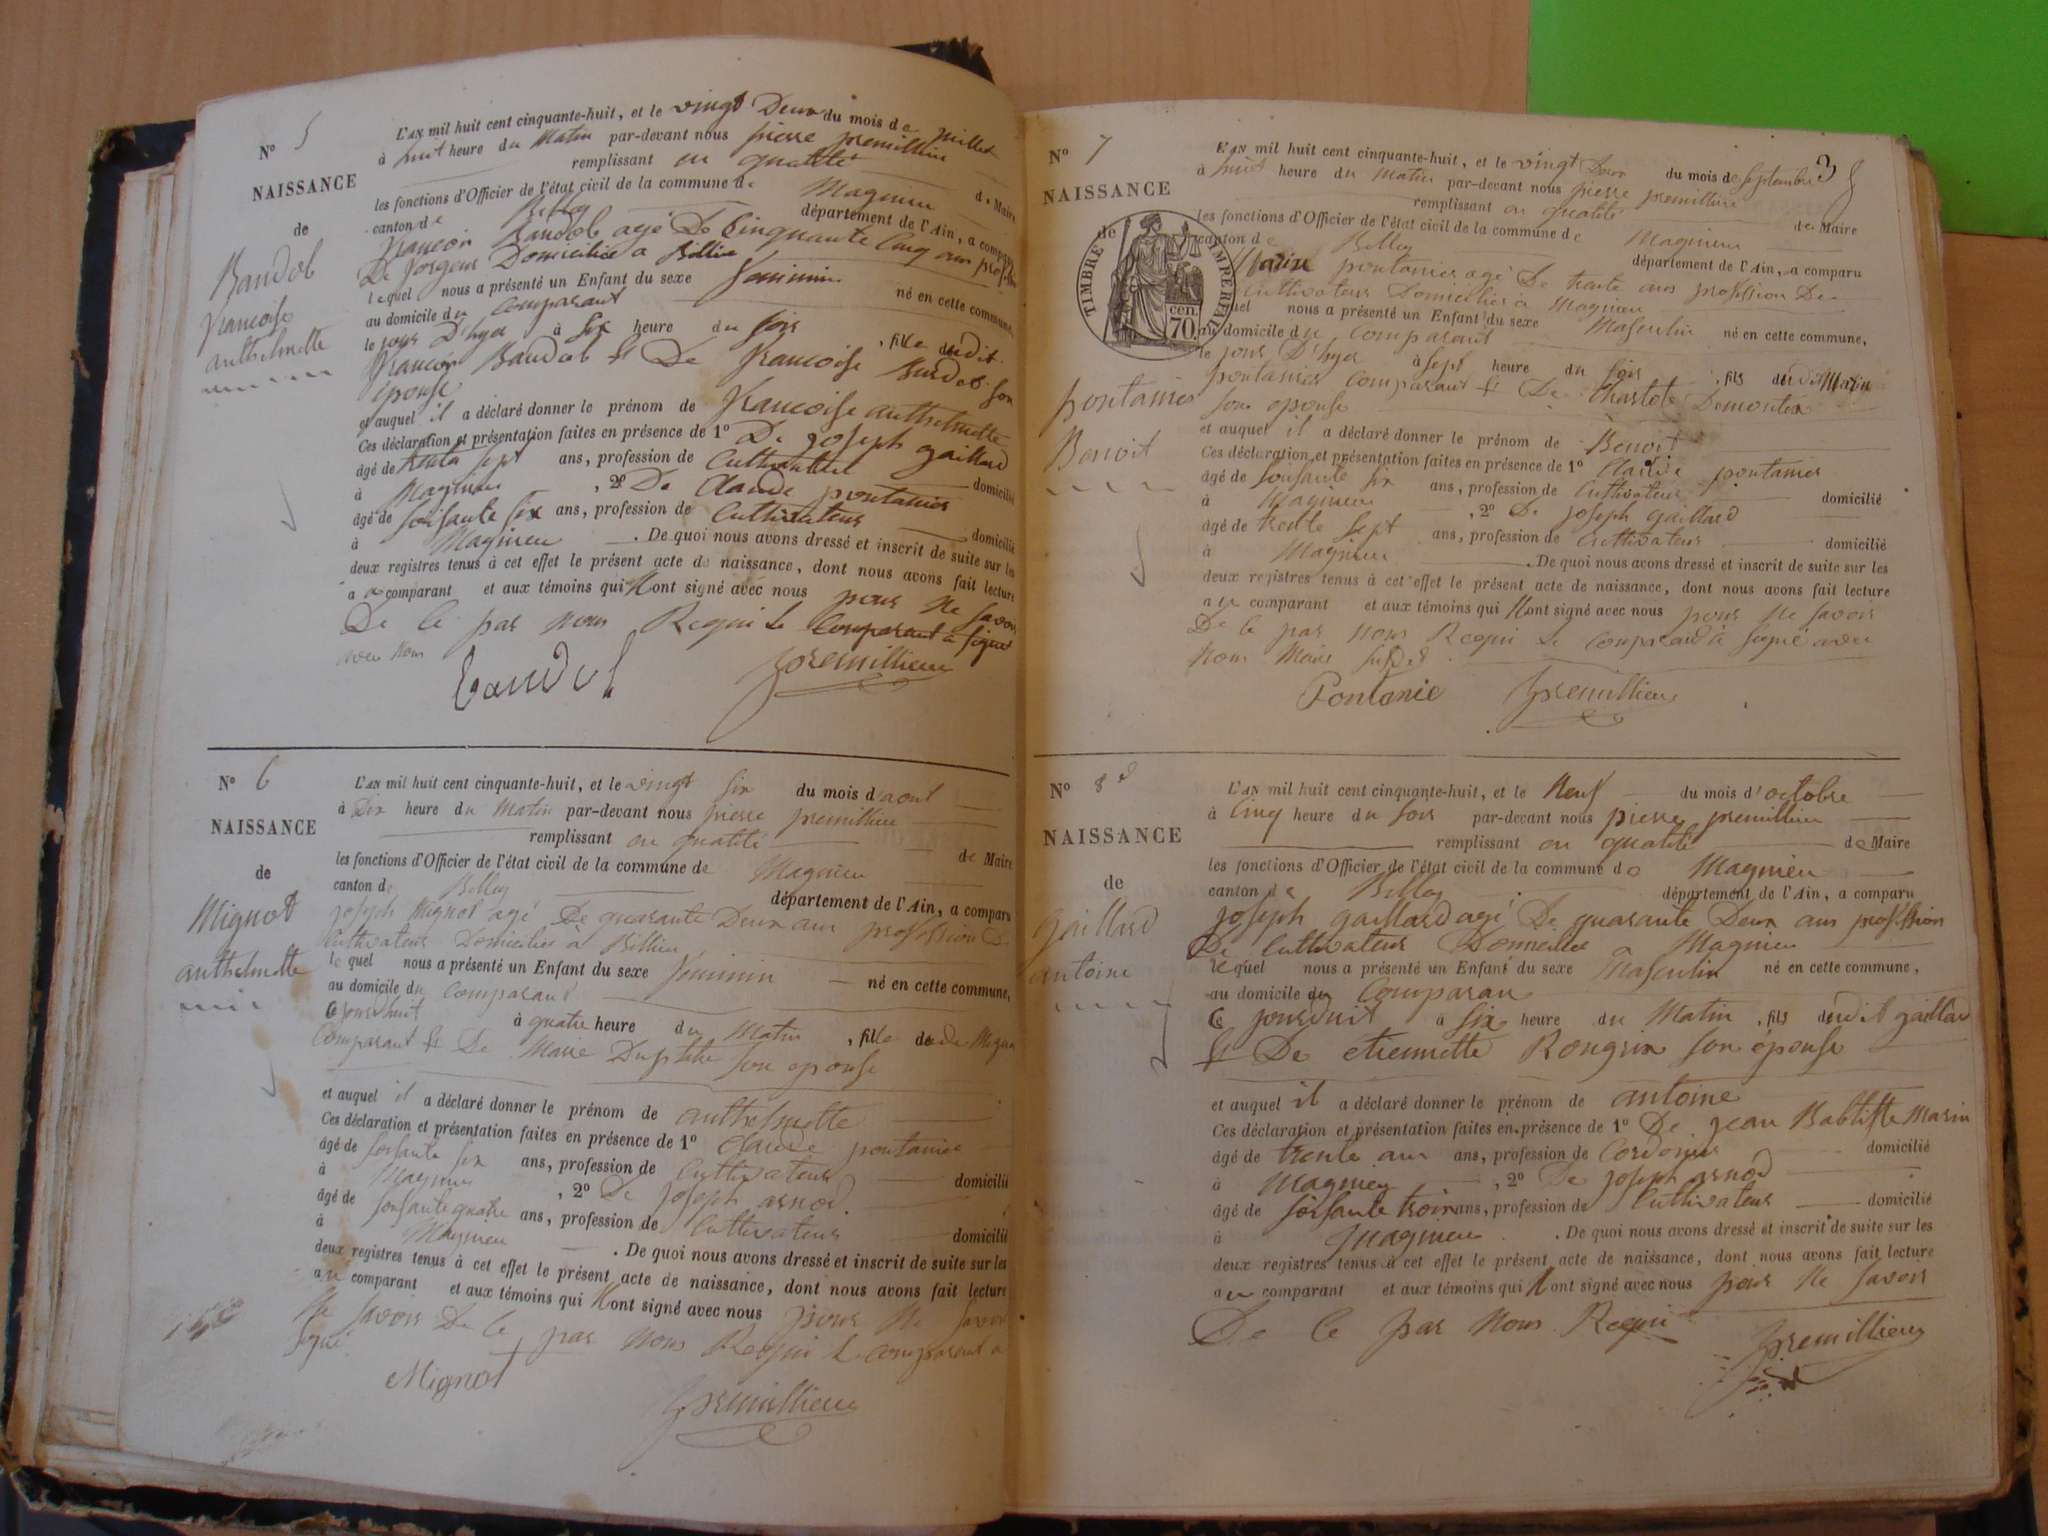 N° 5
NAISSANCE
de
Baudol
francoise
anthelmette
L'AN mil huit cent cinquante-huit, et le vingt Deux du mois de juillet
à huit heure du Matin par-devant nous pierre premillieu
remplissant en qualité de Maire
les fonctions d'Officier de l'état civil de la commune de Magnieu
canton de Belley département de l'Ain, a comparu
francois Baudol agé De Cinquante Cinq ans profession
De forgeur Domicilié a Billieu
lequel nous a présenté un Enfant du sexe feminin né en cette commune,
au domicile du comparant
le jour D'hyer à six heure du soir , fille dudit
francois Baudol & De francoise Burdet son
épouse
et auquel il a déclaré donner le prénom de francoise anthelmette
Ces déclaration et présentation faites en présence de 1° De joseph gaillard
âgé de trente sept ans, profession de Cultivateur domicilié
à Magnieu , 2° De Claude pontanier
âgé de soisante six ans, profession de Cultivateur domicilié
à Magnieu . De quoi nous avons dressé et inscrit de suite sur les
deux registres tenus à cet effet le présent acte de naissance, dont nous avons fait lecture
au comparant et aux témoins qui Nont signé avec nous pour Ne savoir
De Ce pas nous Requi Le Comparant a signé
avec nous
Baudol premillieu
N° 6
NAISSANCE
de
Mignot
anthelmette
L'AN mil huit cent cinquante-huit, et le vingt six du mois d'aout
à Dix heure du Matin par-devant nous pierre premillieu
remplissant en qualité de Maire
les fonctions d'Officier de l'état civil de la commune de Magnieu
canton de Belley département de l'Ain, a comparu
joseph Mignot agé De quarante Deux ans profession De
Cultivateur Domicilié à Billieu
lequel nous a présenté un Enfant du sexe féminin né en cette commune,
au domicile du comparant
Ce jourdhuit à quatre heure du Matin , fille dudit Mignot
Comparant & De Marie son epouse
et auquel il a déclaré donner le prénom de anthelmette
Ces déclaration et présentation faites en présence de 1° Claude pontanier
âgé de soisante six ans, profession de Cultivateur domicilié
à Magnieu , 2° De joseph arnod
âgé de soisante quatre ans, profession de Cultivateur domicilié
à Magnieu . De quoi nous avons dressé et inscrit de suite sur les
deux registres tenus à cet effet le présent acte de naissance, dont nous avons fait lecture
au comparant et aux témoins qui Nont signé avec nous pour Ne savoir
Ne savoir De Ce pas nous Requi Le comparant a
signé
Mignot
premillieu
3
N° 7
NAISSANCE
de
TIMBRE IMPERIAL
70 cen.
pontanier
Benoit
L'AN mil huit cent cinquante-huit, et le vingt Deux du mois de Septembre
à huit heure du Matin par-devant nous pierre premillieu
remplissant en qualité de Maire
les fonctions d'Officier de l'état civil de la commune de Magnieu
canton de Belley département de l'Ain, a comparu
Marin pontanier agé De trente ans profession De
Cultivateur Domicilié à Magnieu
lequel nous a présenté un Enfant du sexe Masculin né en cette commune,
au domicile du comparant
le jour D'hyer à sept heure du soir , fils dudit Marin
pontanier Comparant & De Charlote
son epouse
et auquel il a déclaré donner le prénom de Benoit
Ces déclaration et présentation faites en présence de 1° Claude pontanier
âgé de soisante six ans, profession de Cultivateur domicilié
à Magnieu , 2° De joseph gaillard
âgé de trente sept ans, profession de Cultivateur domicilié
à Magnieu . De quoi nous avons dressé et inscrit de suite sur les
deux registres tenus à cet effet le présent acte de naissance, dont nous avons fait lecture
au comparant et aux témoins qui Nont signé avec nous pour Ne savoir
De Ce pas nous Requi Le comparant à signé avec
nous Maire susdit
Pontanie premillieu
N° 8
NAISSANCE
de
gaillard
antoine
L'AN mil huit cent cinquante-huit, et le Neuf du mois d'octobre
à Cinq heure du soir par-devant nous pierre premillieu
remplissant en qualité de Maire
les fonctions d'Officier de l'état civil de la commune de Magnieu
canton de Belley département de l'Ain, a comparu
joseph gaillard agé De quarante Deux ans profession
De Cultivateur Domicilié a Magnieu
lequel nous a présenté un Enfant du sexe Masculin né en cette commune,
au domicile du Comparan
Ce jourduit à six heure du Matin , fils dudit gaillard
& De etiennette Rongrin son épouse
et auquel il a déclaré donner le prénom de antoine
Ces déclaration et présentation faites en présence de 1° De jean Babtiste Marin
âgé de trente ans ans, profession de Cordonier domicilié
à Magnieu , 2° De joseph arnod
âgé de soisante troix ans, profession de Cultivateur domicilié
à Magnieu . De quoi nous avons dressé et inscrit de suite sur les
deux registres tenus à cet effet le présent acte de naissance, dont nous avons fait lecture
au comparant et aux témoins qui Nont signé avec nous pour Ne savoir
De Ce pas Nous Requi
premillieu